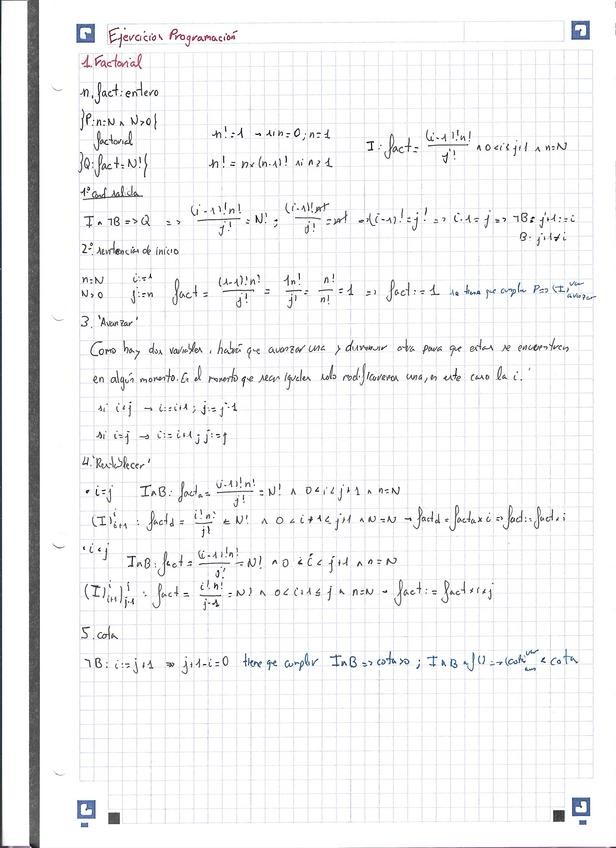 Ejercicios Programación
1. Factorial
n, fact: entero
}P: n=N ∧ N>0{
factorial
}Q: fact=N!{
n!=1 → si n=0; n=1
n! = n×(n-1)! si n≥1
I: fact = (i-1)!n!/j! ∧ 0<i≤j+1 ∧ n=N
1º cond salida
I ∧ ¬B => Q => (i-1)!n!/j! = N! ; (i-1)!n!/j! = n! → (i-1)! = j! => i-1=j => ¬B: j+1=i
B: j+1≠i
2º. sentencias de inicio
n=N i:=1
N>0 j:=n fact = (1-1)!n!/j! = 1n!/j! = n!/n! = 1 => fact:=1 se tiene que cumplir P=>(I) var avanzar
3. 'Avanzar'
Como hay dos variables, habrá que avanzar una y disminuir otra para que estas se encuentren
en algún momento. En el momento que sean iguales solo modificaremos una, en este caso la i.
si i<j → i:=i+1; j:=j-1
si i=j → i:=i+1; j:=j
4. 'Restablecer'
• i=j I∧B: factₐ = (i-1)!n!/j! = N! ∧ 0<i<j+1 ∧ n=N
(I)ⁱᵢ₊₁ : factd = i!n!/j! = N! ∧ 0<i+1<j+1 ∧ n=N → factd = factₐ×i => fact:=fact×i
• i<j I∧B: fact = (i-1)!n!/j! = N! ∧ 0<i<j+1 ∧ n=N
(I)ⁱᵢ₊₁ ʲⱼ₋₁ : fact = i!n!/j-1 = N! ∧ 0<i+1≤j ∧ n=N → fact := fact×i×j
5. cota
¬B: i:=j+1 => j+1-i=0 tiene que cumplir I∧B => cota>0 ; I∧B ∧ => (cota) var < cota